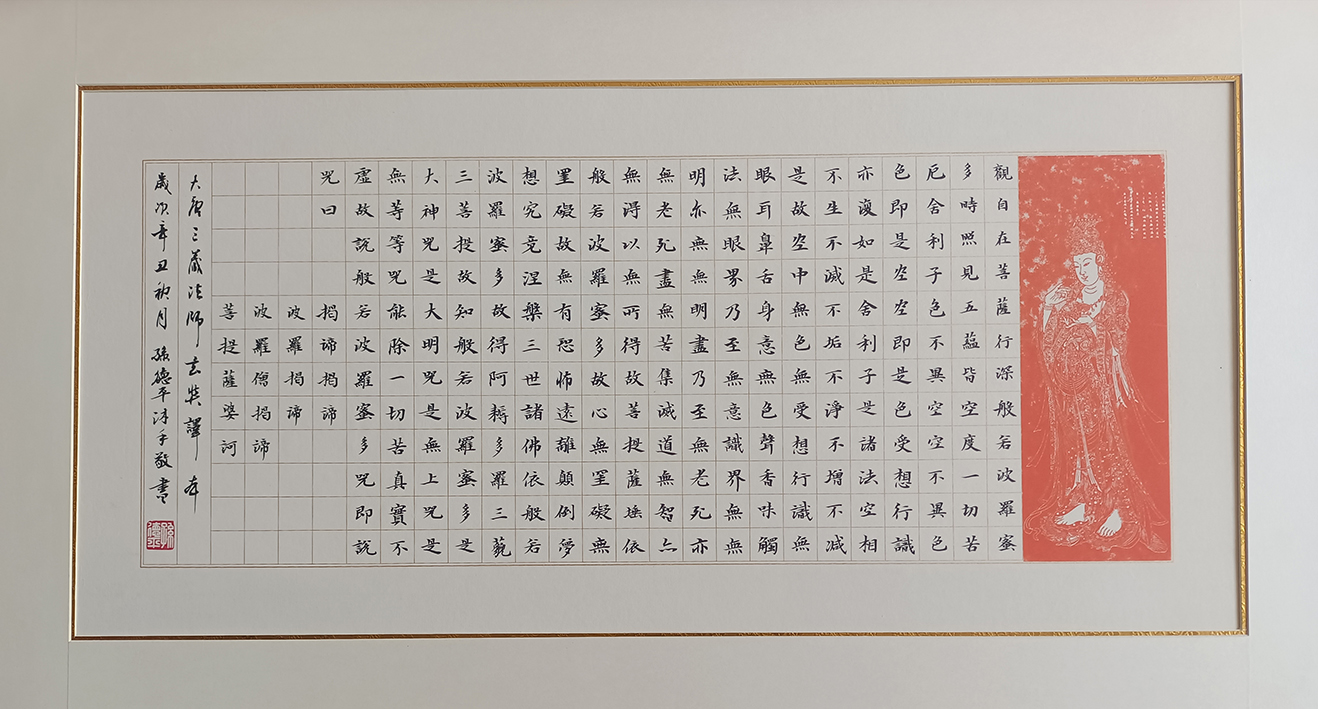 觀自在菩薩行深般若波羅蜜
多時照見五蘊皆空度一切苦
厄舍利子色不異空空不異色
色即是空空即是色受想行識
亦復如是舍利子是諸法空相
不生不滅不垢不淨不增不減
是故空中無色無受想行識無
眼耳鼻舌身意無色聲香味觸
法無眼界乃至無意識界無無
明亦無無明盡乃至無老死亦
無老死盡無苦集滅道無智亦
無得以無所得故菩提薩埵依
般若波羅蜜多故心無罣礙無
罣礙故無有恐怖遠離顛倒夢
想究竟涅槃三世諸佛依般若
波羅蜜多故得阿耨多羅三藐
三菩提故知般若波羅蜜多是
大神咒是大明咒是無上咒是
無等等咒能除一切苦真實不
虛故說般若波羅蜜多咒即說
咒曰
揭諦揭諦
波羅揭諦
波羅僧揭諦
菩提薩婆訶
大唐三藏法師玄奘譯本
歲次辛丑秋月孫德平沐手敬書